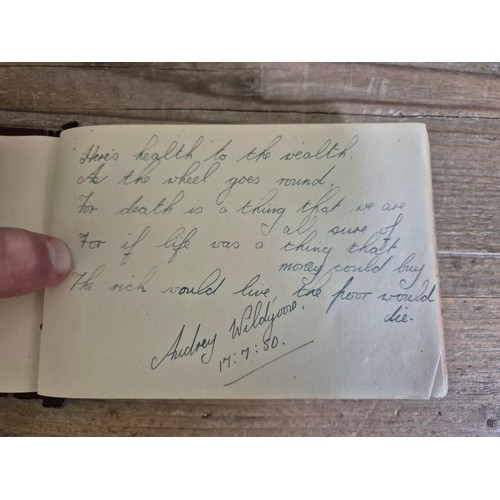 Here's health to the wealth.
As the wheel goes round,
For death is a thing that we are
all sure of
For if life was a thing that
money could buy
The rich would live, the poor would
die.
Audrey Wildgoose.
17:7:50.